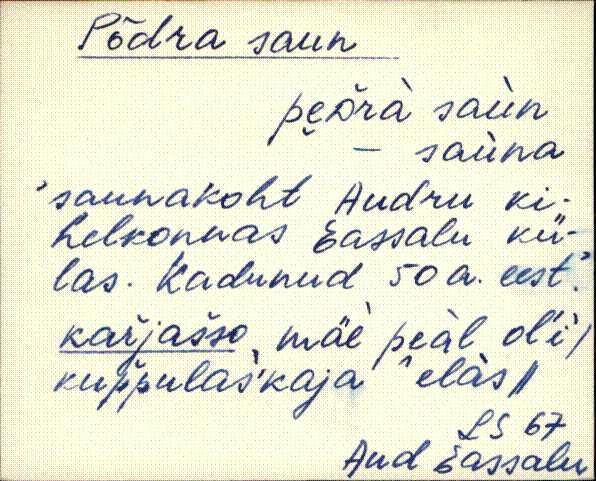 Põdra saun
pẹDrà saùn
— saùna
'saunakoht Audru ki-
helkonnas Eassalu kü-
las. Kadunud 50 a. eest'.
kařjašso, mäè peàl ol'ì/
kup̆pulas'kaja ˆelàs//
LS 67
Aud Eassalu